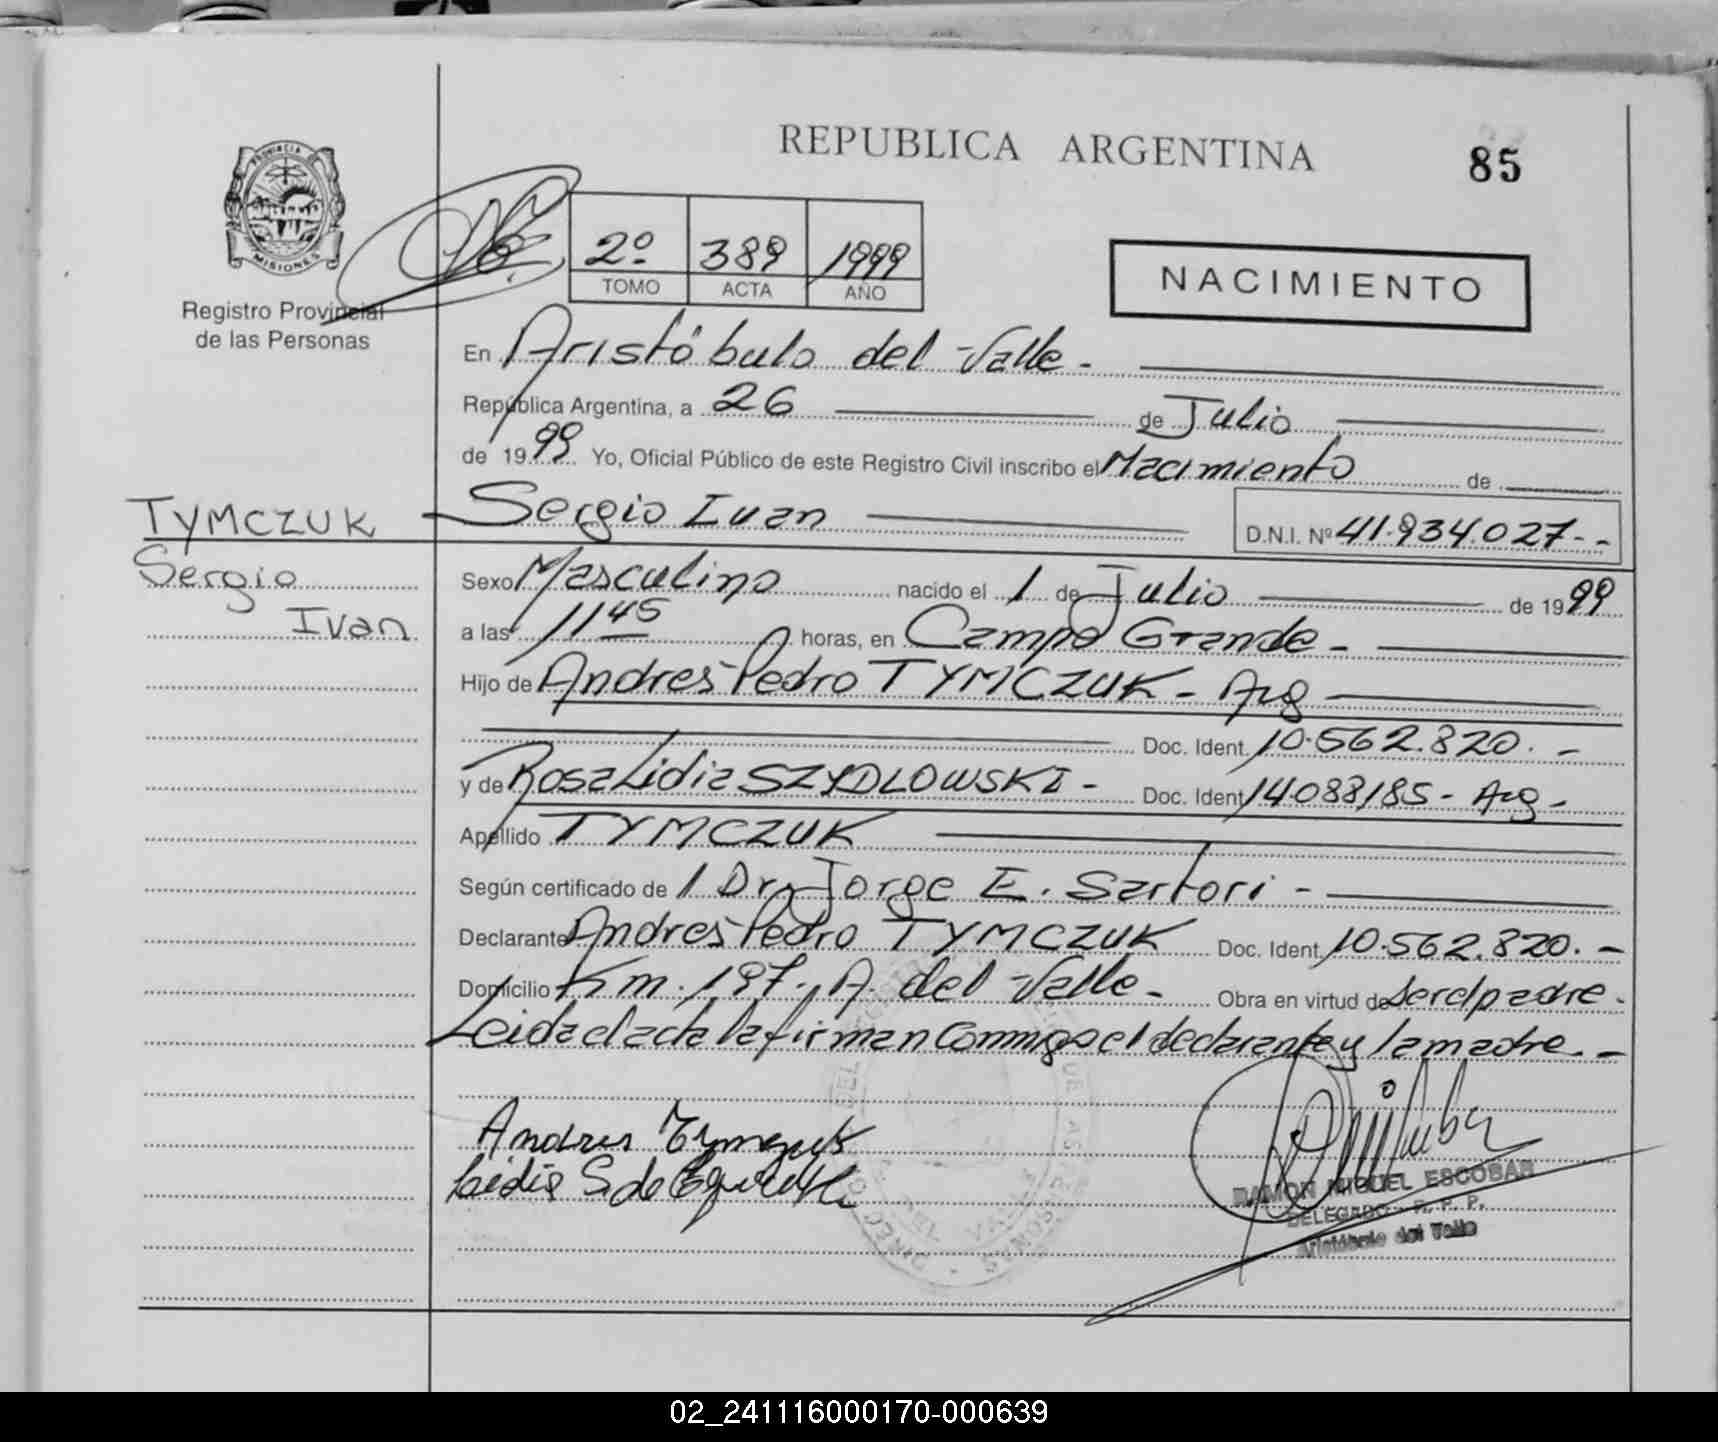 REPUBLICA ARGENTINA
85
PROVINCIA DE
MISIONES
Registro Provincial
de las Personas
2º 389 1999
TOMO ACTA AÑO
NACIMIENTO
En Aristóbulo del Valle -
República Argentina, a 26 de Julio
de 1999 Yo, Oficial Público de este Registro Civil inscribo el Nacimiento de
TYMCZUK
Sergio
Ivan
Sergio Ivan D.N.I. Nº 41.934.027--
Sexo Masculino nacido el 1 de Julio de 1999
a las 11 45 horas, en Campo Grande -
Hijo de Andres Pedro TYMCZUK - Arg
Doc. Ident. 10.562.820. -
y de Rosa Lidia SZYDLOWSKI - Doc. Ident. 14.088.185 - Arg -
Apellido TYMCZUK
Según certificado de 1 Dr. Jorge E. Sartori -
Declarante Andres Pedro TYMCZUK Doc. Ident. 10.562.820. -
Domicilio Km. 197. A. del Valle - Obra en virtud de ser el padre.
Leida el acta la firman conmigo el declarante y la madre. -
Andres Tymczuk
Lidia S de
RAMON MIGUEL ESCOBAR
DELEGADO - R. P. P.
Aristóbulo del Valle
02_241116000170-000639